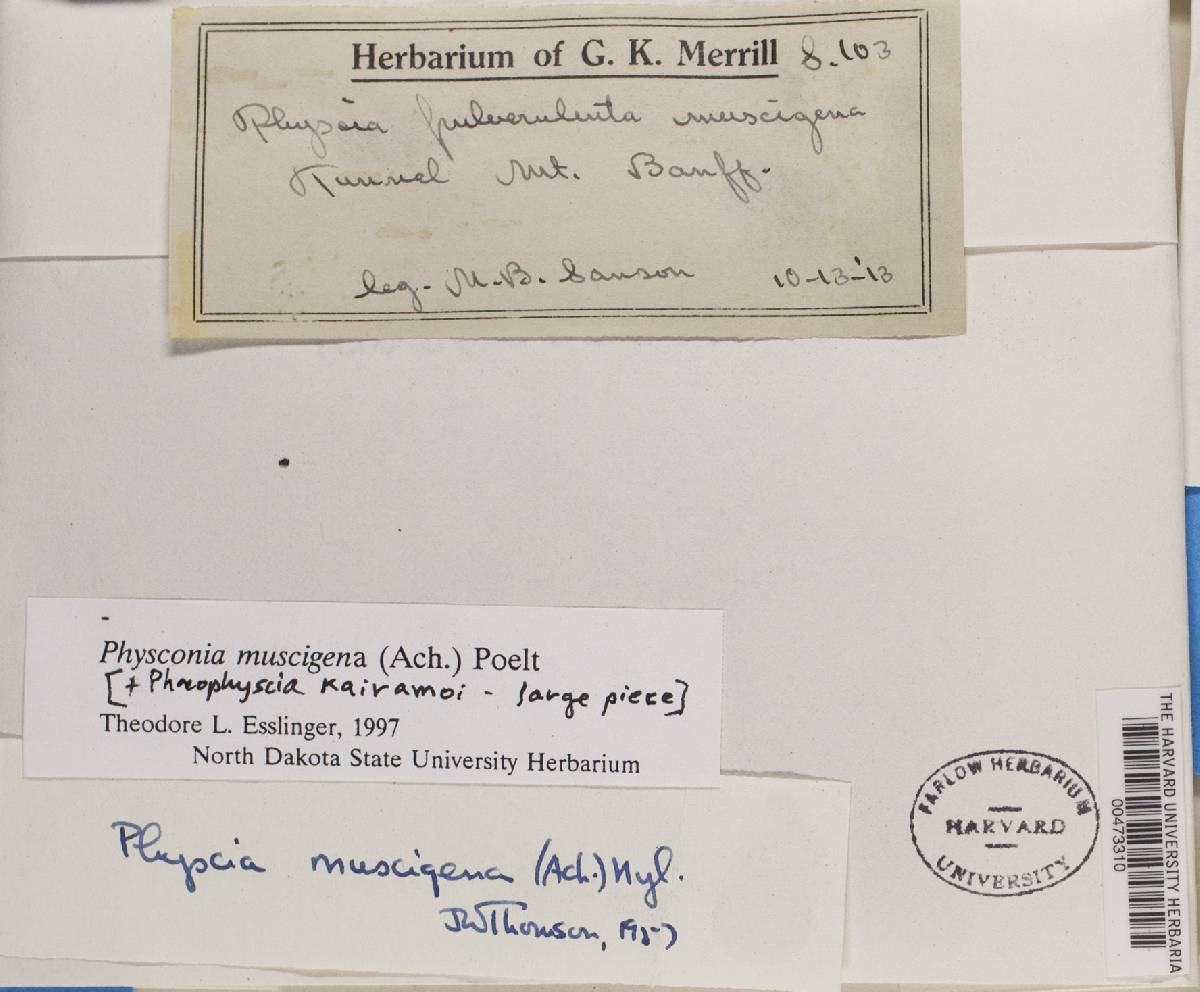 Herbarium of G. K. Merrill 8.103
Physcia pulverulenta muscigena
Tunnel Mt. Banff.
leg. M.B. Sanson 10-13-'13
Physconia muscigena (Ach.) Poelt
[+ Phaeophyscia kairamoi - large piece]
Theodore L. Esslinger, 1997
North Dakota State University Herbarium
Physcia muscigena (Ach.) Nyl.
JWThomson, 1957
FARLOW HERBARIUM
HARVARD
UNIVERSITY
THE HARVARD UNIVERSITY HERBARIA
00473310